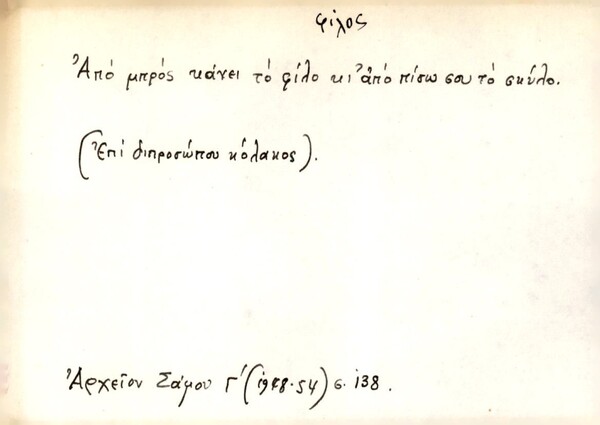 φίλος
Ἀπό μπρός κάνει τό φίλο κι' ἀπό πίσω σου τό σκύλο.
(Ἐπί διπροσώπου κόλακος).
Ἀρχεῖον Σάμου Γ' (1948-54) σ. 138.